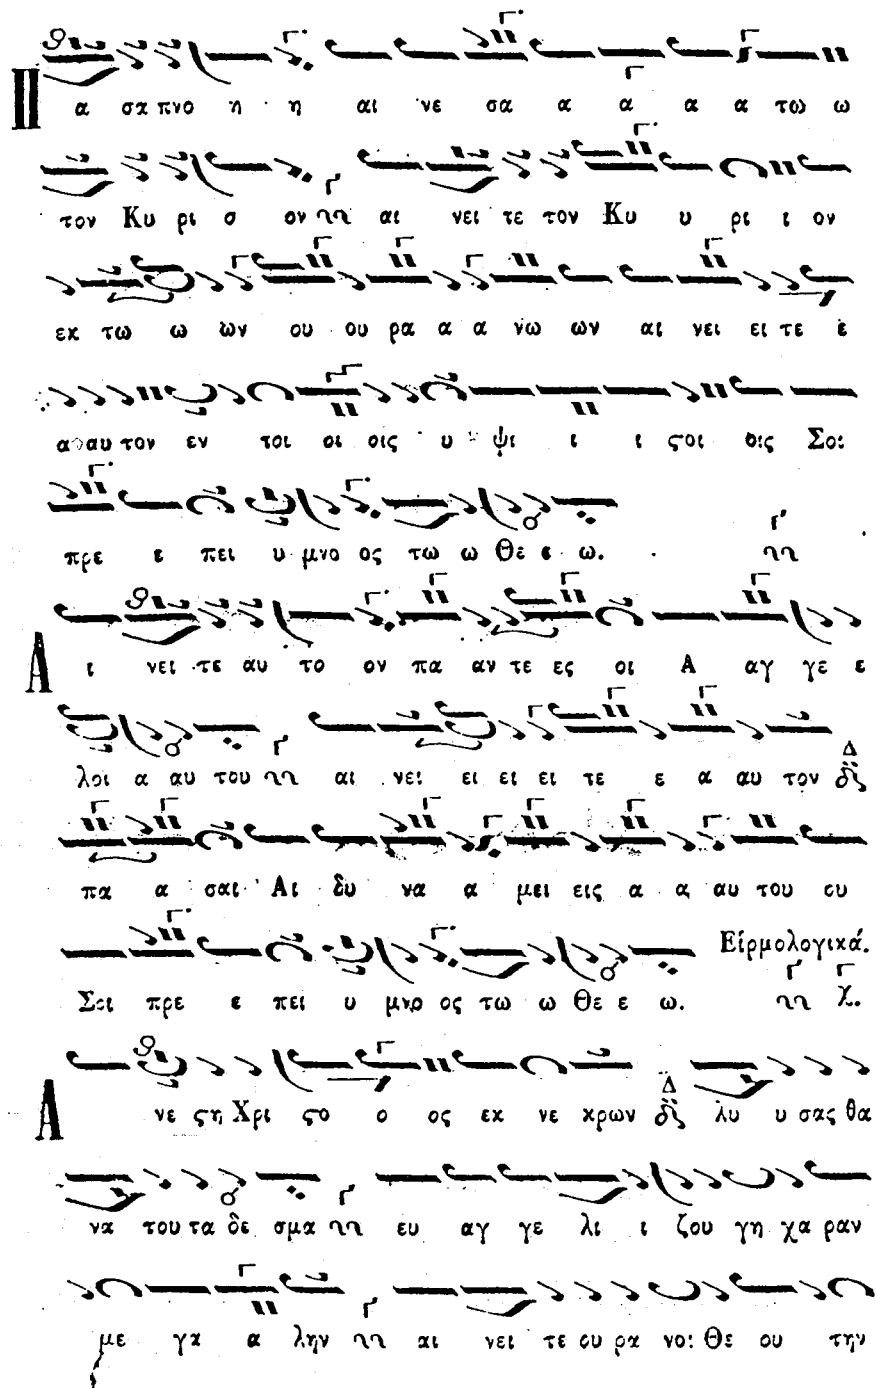 Πα σα πνο η η αι νε σα α α α α τω ω
τον Κυ ρι ο ον αι νει τε τον Κυ υ ρι ι ον
εκ τω ω ων ου ου ρα α α νω ων αι νει ει τε ε
α αυ τον εν τοι οι οις υ ψι ι ι ϛοι οις Σοι
πρε ε πει υ μνο ος τω ω Θε ε ω.
Α ι νει τε αυ το ον πα αν τε ες οι Α αγ γε ε
λοι α αυ του αι νει ει ει ει τε ε α αυ τον
πα α σαι Αι δυ να α μει εις α α αυ του ου
Σοι πρε ε πει υ μνο ος τω ω Θε ε ω. Εἱρμολογικά.
Α νε ϛη Χρι ϛο ο ος εκ νε κρων λυ υ σας θα
να του τα δε σμα ευ αγ γε λι ι ζου γη χα ραν
με γα α λην αι νει τε ου ρα νοι Θε ου την